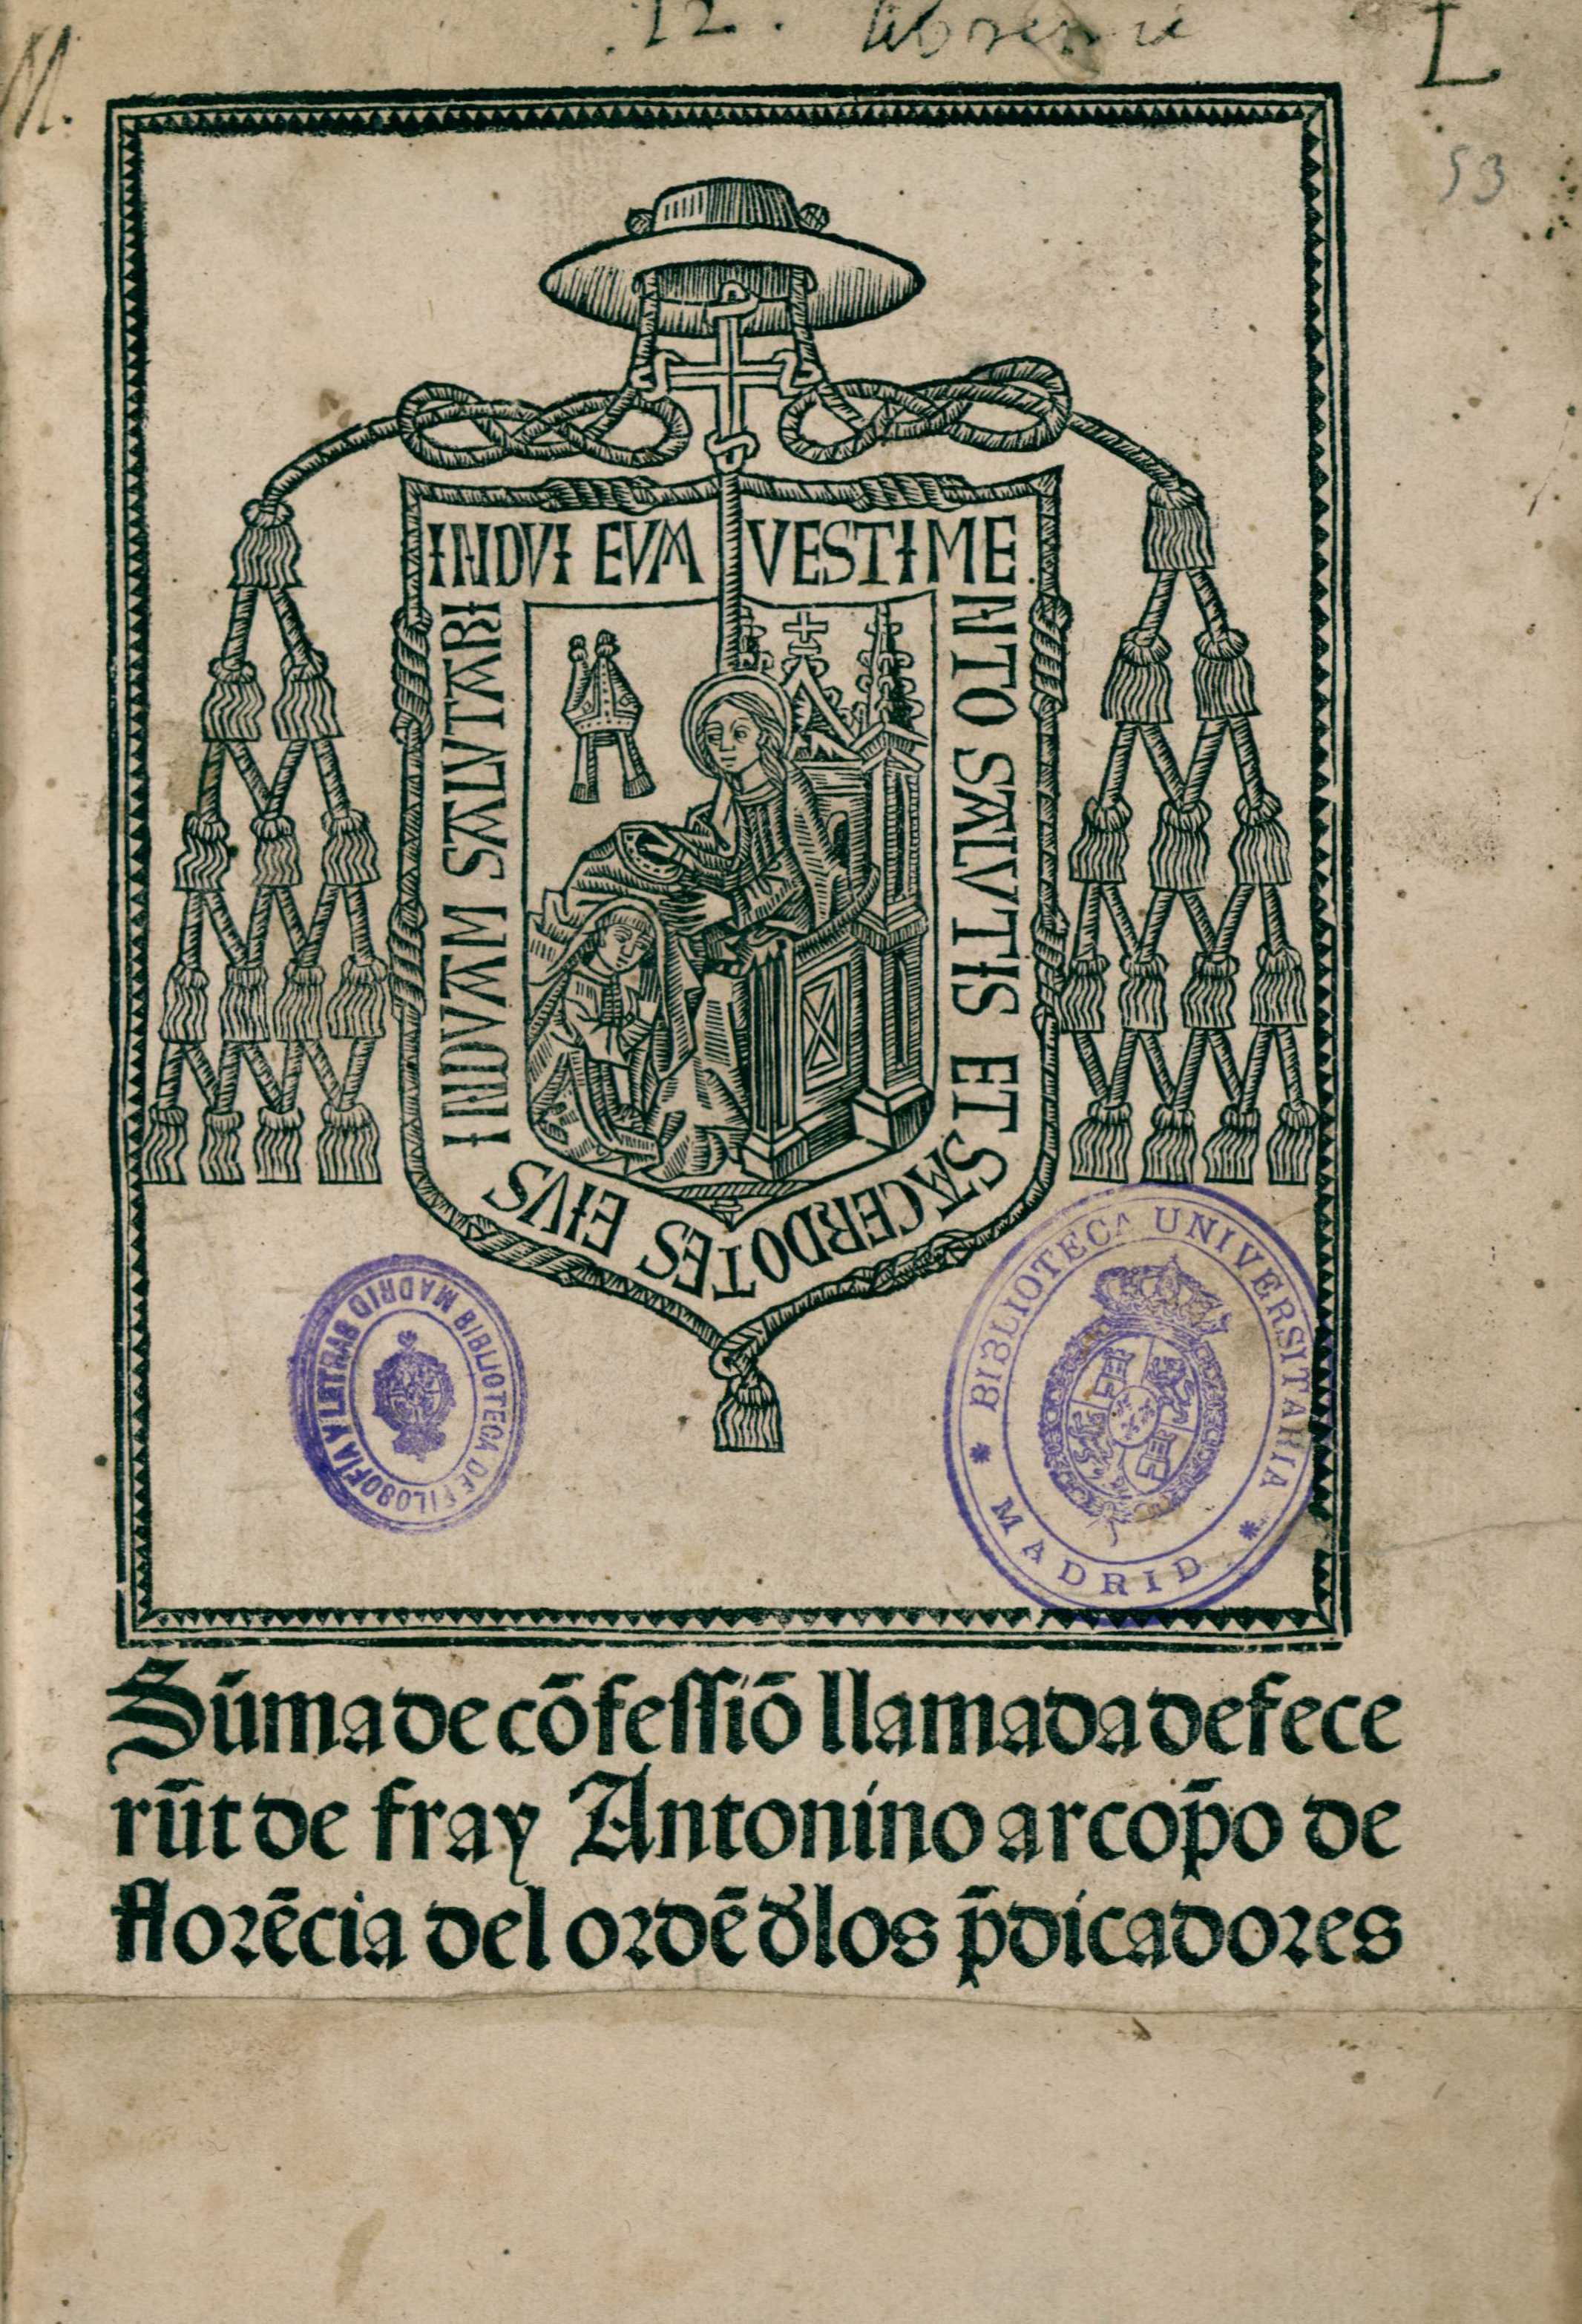 .12. libreria
L
M.
53
INDVI EVM VESTIME
NTO SALVTIS ET
SACERDOTES EIVS
INDVAM SALVTARI
BIBLIOTECA DE FILOSOFIA Y LETRAS MADRID
* BIBLIOTECA UNIVERSITARIA *
MADRID
Sūma de cōfessiō llamada defece
rūt de fray Antonino arcop̄o de
florēcia del ordē dlos p̄dicadores